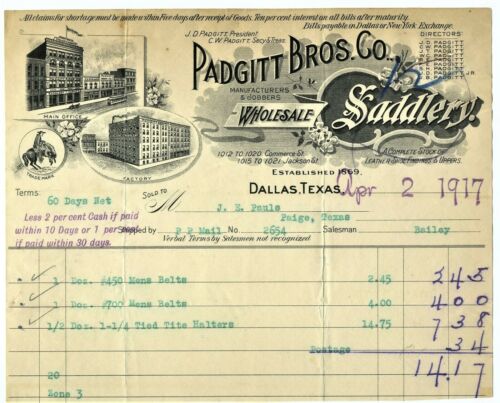 All claims for shortage must be made within Five days after receipt of Goods. Ten per cent interest on all bills after maturity.
Bills payable in Dallas or New York Exchange.
J. D. PADGITT, President.
C. W. PADGITT, Secy & Treas.
DIRECTORS
PADGITT BROS. CO.
MANUFACTURERS
& JOBBERS
WHOLESALE
Saddlery.
MAIN OFFICE
FACTORY
TRADE MARK
1012 TO 1020 Commerce St.
1015 TO 1021 Jackson St.
A COMPLETE STOCK OF
LEATHER, SHOE FINDINGS & UPPERS.
ESTABLISHED 1869.
DALLAS, TEXAS, Apr 2 1917
Terms: 60 Days Net
SOLD TO M J. E. Pauls
Less 2 per cent Cash if paid
within 10 Days or 1 per cent
if paid within 30 days.
Paige, Texas
Shipped by P P Mail No. 2654 Salesman Bailey
Verbal Terms by Salesmen not recognized
1 Doz. #450 Mens Belts 2.45 2 4 5
1 Doz. #700 Mens Belts 4.00 4 0 0
1/2 Doz. 1-1/4 Tied Tite Halters 14.75 7 3 8
Postage 3 4
14.17
20
Zone 3